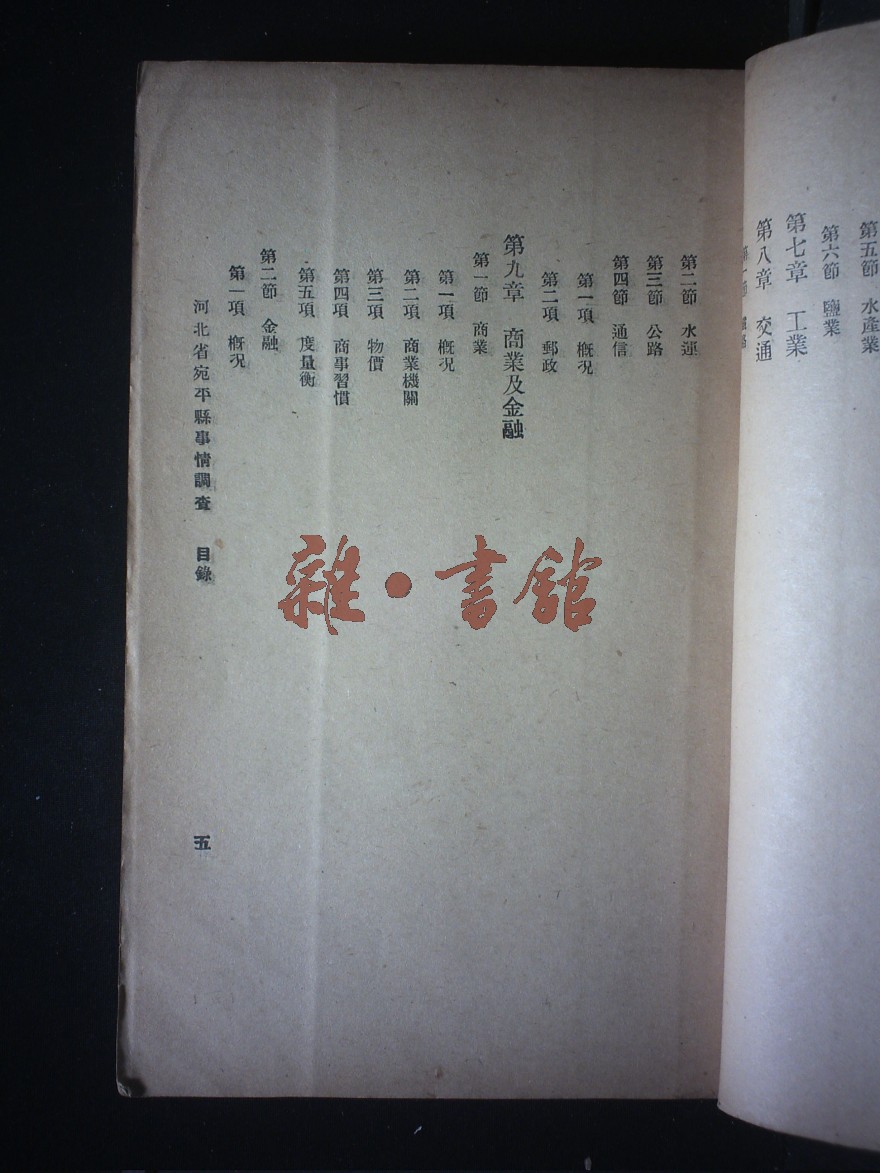 第五節 水產業
第六節 鹽業
第七章 工業
第八章 交通
第二節 水運
第三節 公路
第四節 通信
第一項 概況
第二項 郵政
第九章 商業及金融
第一節 商業
第一項 概況
第二項 商業機關
第三項 物價
第四項 商事習慣
第五項 度量衡
第二節 金融
第一項 概況
河北省宛平縣事情調查 目錄
五
雜·書館